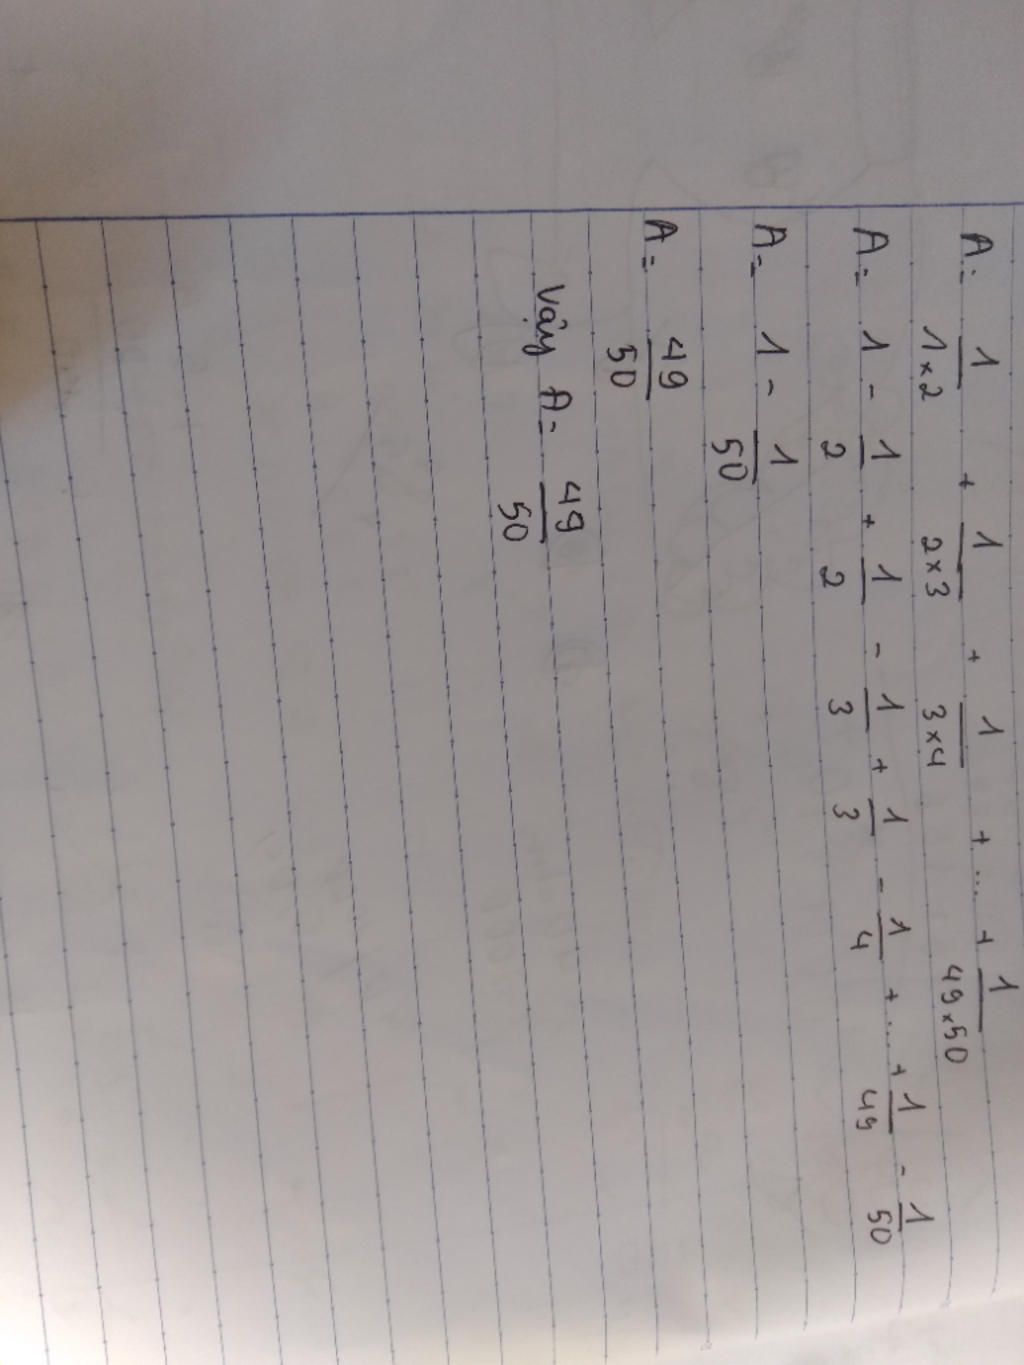 A = 1/1×2 + 1/2×3 + 1/3×4 + ... + 1/49×50
A = 1 - 1/2 + 1/2 - 1/3 + 1/3 - 1/4 + ... + 1/49 - 1/50
A = 1 - 1/50
A = 49/50
Vậy A = 49/50